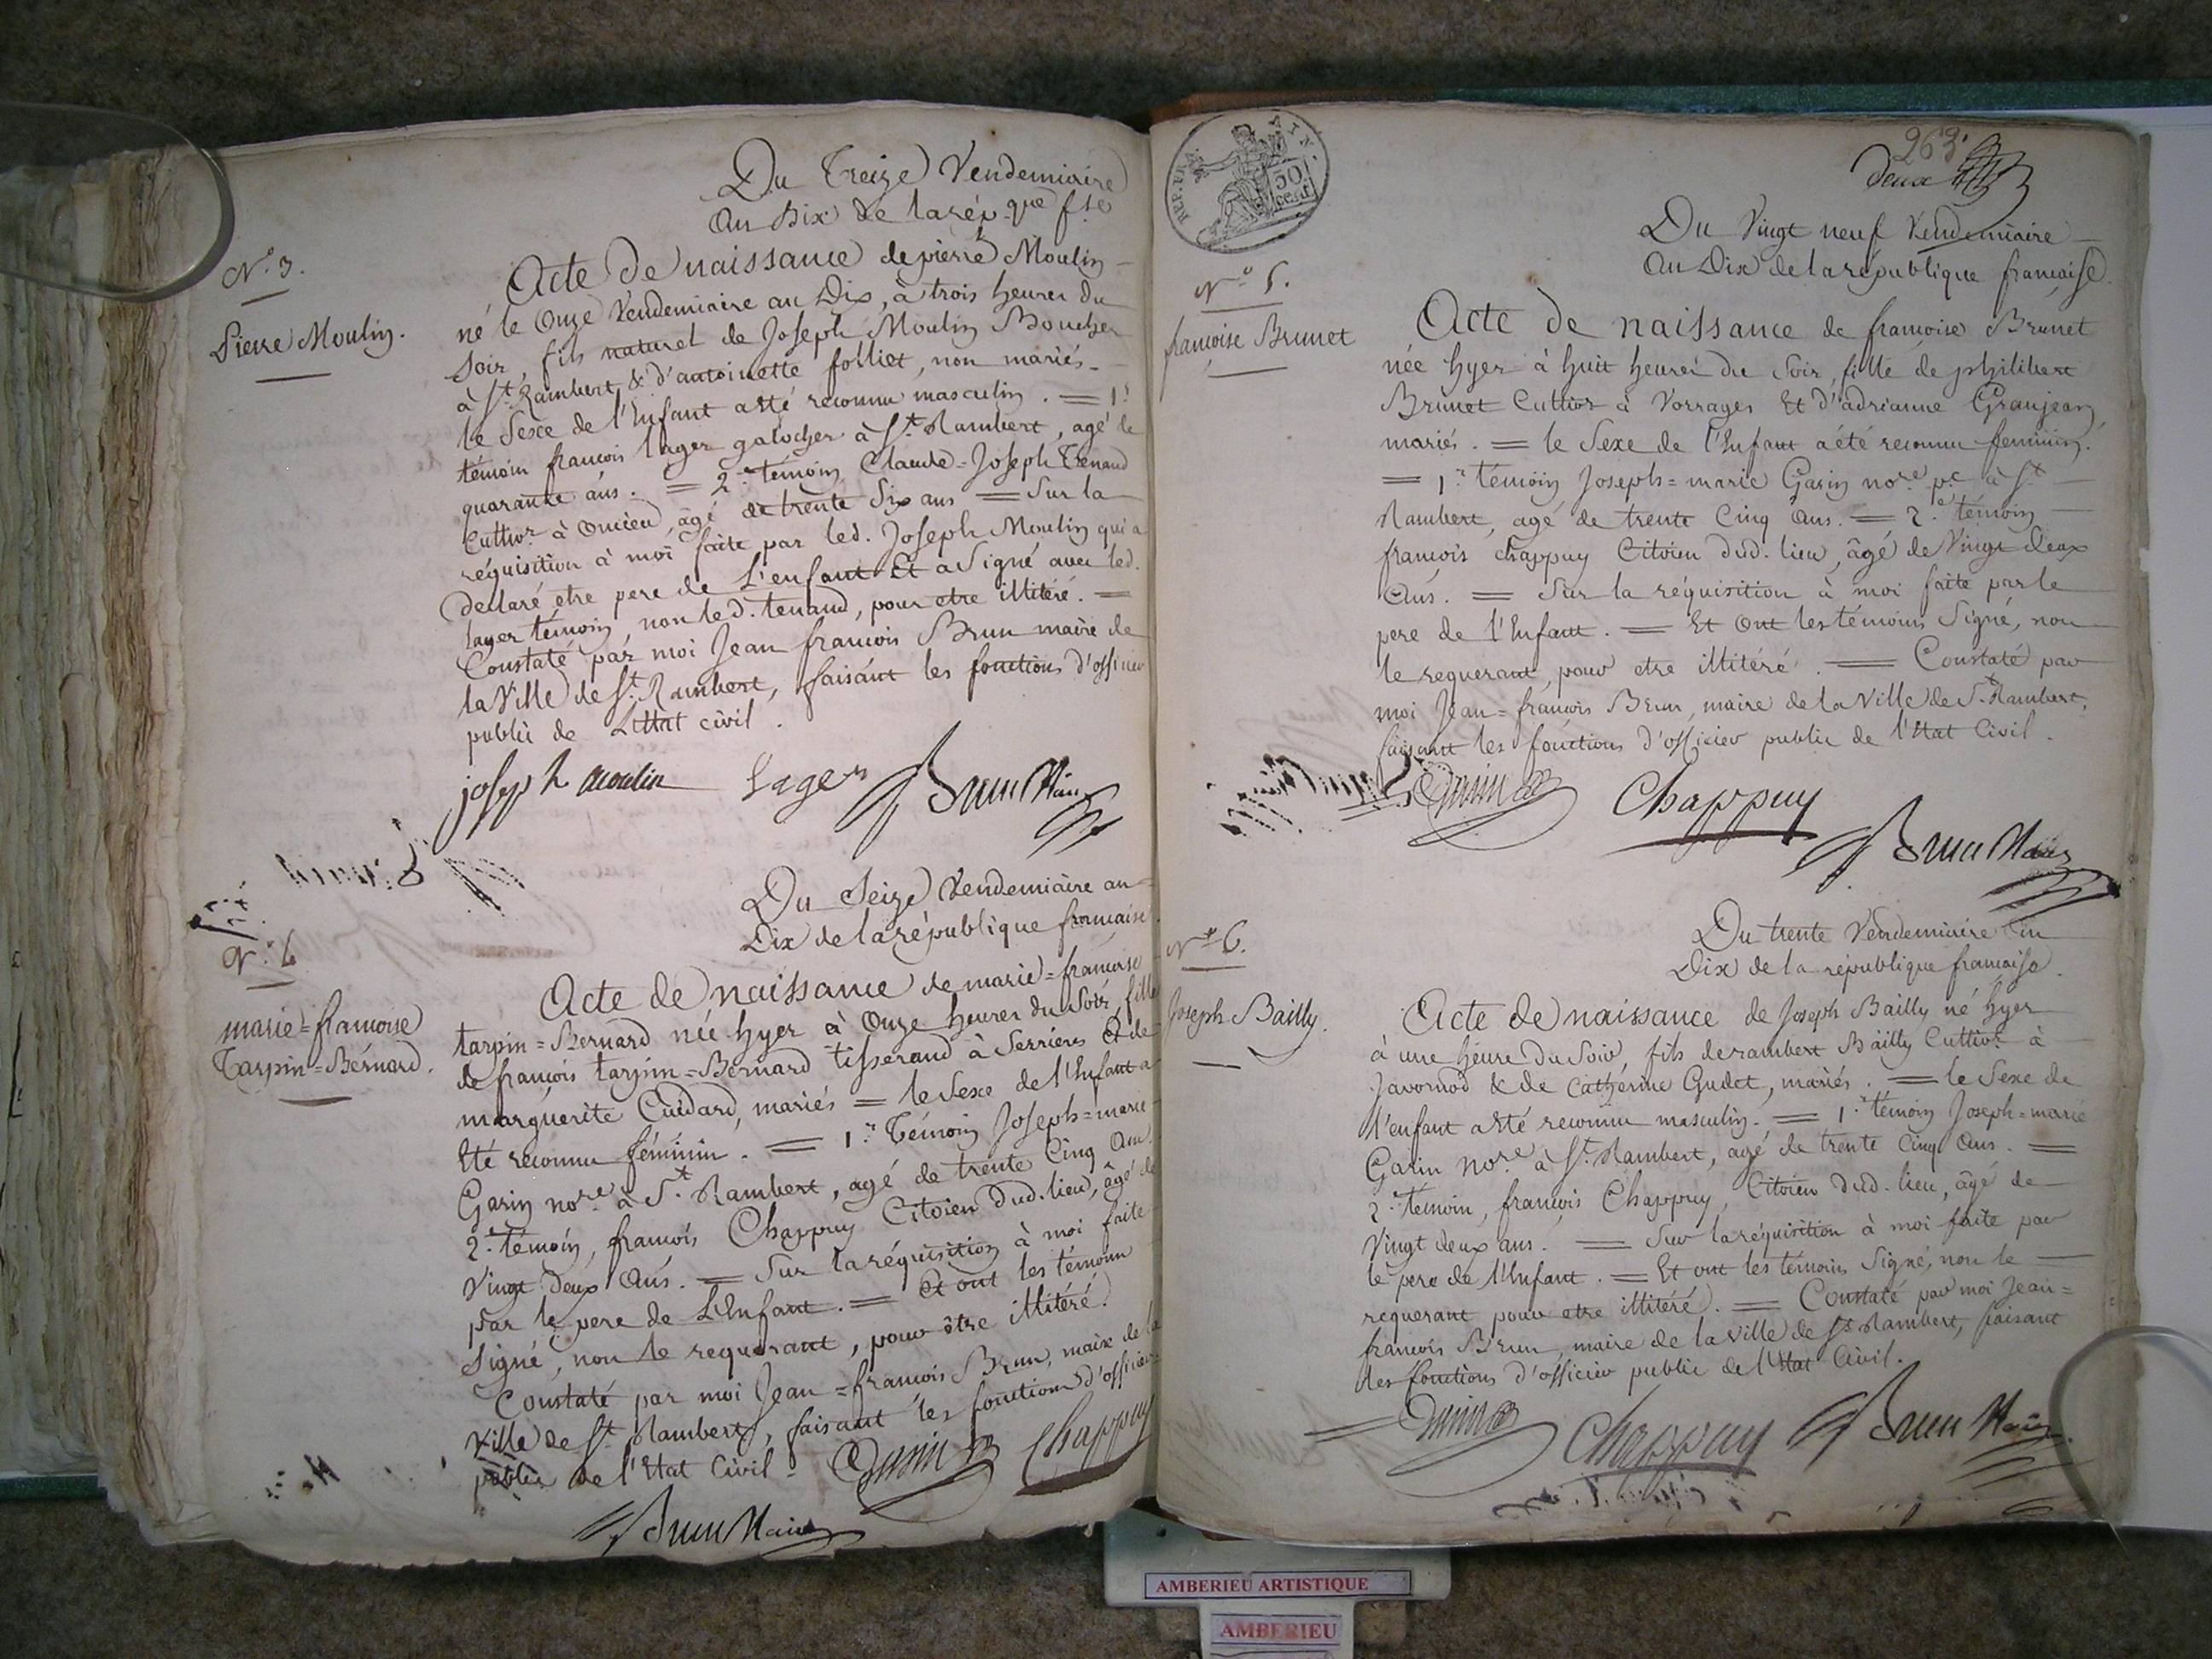 Du Treize Vendemiaire
an Dix de la rép.que f.se
N.o 3.
Pierre Moulin.
Acte de naissance de pierre Moulin
né le Onze Vendemiaire an Dix, à trois heures du
soir, fils naturel de Joseph Moulin Boucher
à St. Rambert, & d'antoinette folliet, non mariés.
le Sexe de l'Enfant a été reconnu masculin. = 1.r
témoin françois lager galocher à St. Rambert, agé de
quarante ans. = 2.e témoin Claude=Joseph Tenand
Cultiv.r à oncieu, âgé de trente Six ans = Sur la
réquisition à moi faite par led. Joseph Moulin qui a
declaré etre pere de L'enfant Et a Signé avec led.
lager témoin, non led. tenand, pour etre illitéré. =
Constaté par moi Jean françois Brun maire de
la Ville de St. Rambert, faisant les fonctions d'officier
public de L'Etat civil.
joseph moulin Lager Brun Maire
Du Seize Vendemiaire an
Dix de la république française.
N.o 4
marie=francoise
Tarpin=Bérnard.
Acte de naissance de marie=françoise
tarpin=Bernard née hyer à Onze heures du Soir, fille
de françois tarpin=Bernard tisserand à Serrières et de
marguerite Cuidard, mariés = le Sexe de l'Enfant a
Eté reconnu féminin. = 1.r Témoin Joseph=marie
Garin no.re à St. Rambert, agé de trente Cinq ans
2.e témoin, françois Chappuy Citoien dud. lieu, âgé de
Vingt deux Ans. = Sur la réquisition à moi faite
par le pere de L'Enfant. = Et ont les témoins
Signé, non le requerant, pour être illitéré.
Constaté par moi Jean=françois Brun, maire de la
Ville de St. Rambert, faisant les fonctions d'officier
public de l'Etat Civil = Garin Chappuy
Brun Maire
REP. FRA.
50
cent.
263.
deux
Du Vingt neuf Vendemiaire
an Dix de la république française.
N.o 5.
françoise Brunet
Acte de naissance de francoise Brunet
née hyer à huit heures du Soir, fille de philibert
Brunet Cultiv.r à Vorrages Et d'adrianne Granjean
mariés. = le Sexe de l'Enfant a été reconnu feminin.
= 1.r témoin Joseph=marie Garin no.re p.c à St.
Rambert, agé de trente Cinq Ans. = 2.e témoin
françois chappuy Citoien dud. lieu, âgé de Vingt deux
Ans. = Sur la réquisition à moi faite par le
pere de l'Enfant. = Et Ont les témoins Signé, non
le requerant, pour etre illitéré. = Constaté par
moi Jean=françois Brun, maire de la Ville de St. Rambert,
faisant les fonctions d'officier public de l'Etat Civil.
Garin Chappuy
Brun Maire
Du trente Vendemiaire an
Dix de la république française.
N.o 6.
Joseph Bailly.
Acte de naissance de Joseph Bailly né hyer
à une heure du Soir, fils de rambert Bailly Cultiv.r à
Javornod & de Cathérine Gudet, mariés. = le Sexe de
l'enfant a été reconnu masculin. = 1.r témoin Joseph=marie
Garin No.re à St. Rambert, agé de trente Cinq Ans. =
2.e témoin, françois Chappuy, Citoien dud. lieu, âgé de
Vingt deux ans. = Sur la réquisition à moi faite par
le pere de l'Enfant. = Et ont les témoins Signé, non le
requerant pour etre illitéré. = Constaté par moi Jean=
françois Brun, maire de la Ville de St. Rambert, faisant
les fonctions d'officier public de l'Etat Civil.
Garin Chappuy Brun Maire.
AMBERIEU ARTISTIQUE
AMBERIEU